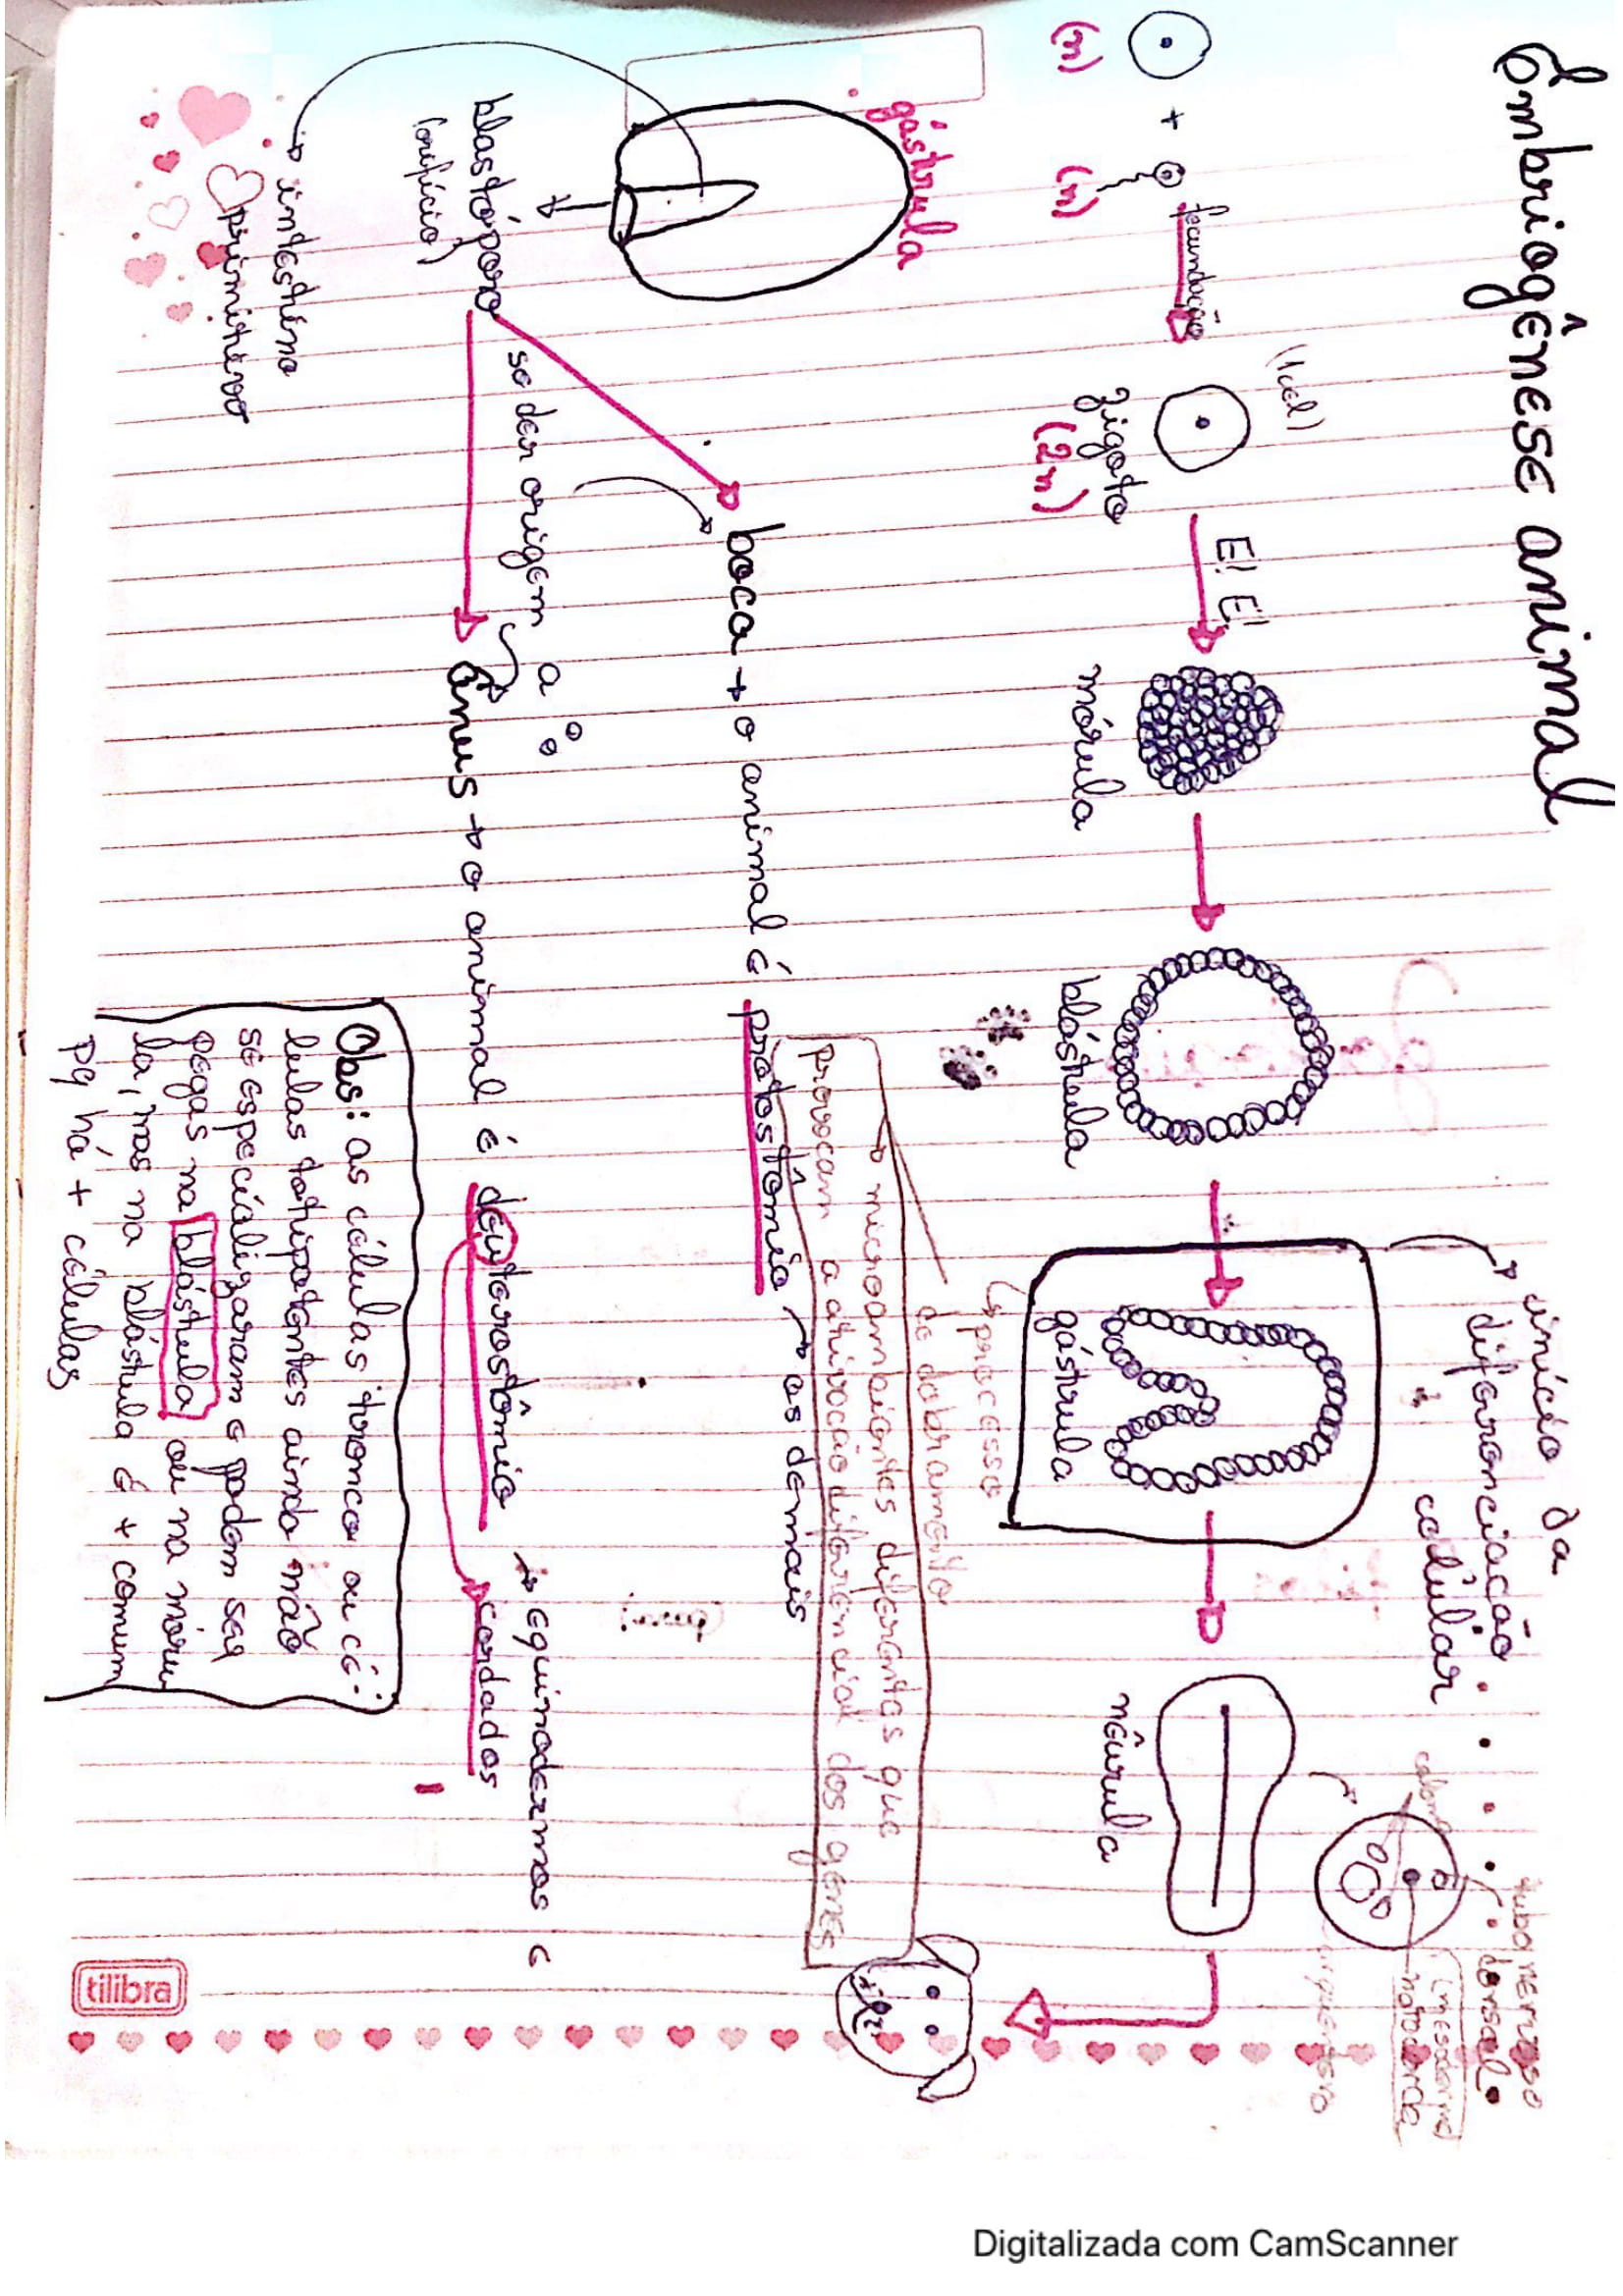 Embriogênese animal
(n) + (n)
fecundação
(1 cél)
zigoto
(2n)
E! E!
mórula
blástula
gástrula
nêurula
início da
diferenciação
celular
celoma
tubo nervoso
dorsal
(mesoderme)
notocorda
arquêntero
↳ processo
de dobramento
→ microambientes diferentes que
provocam a ativação diferencial dos genes
gástrula
blastóporo
(orifício)
→ intestino
primitivo
se der origem a:
boca → o animal é protostômio → os demais
ânus → o animal é deuterostômio → equinodermos e
cordados
Obs: as células tronco ou cé-
lulas totipotentes ainda não
se especializaram e podem ser
pegas na blástula ou na móru
la, mas na blástula é + comum
pq há + células
tilibra
Digitalizada com CamScanner